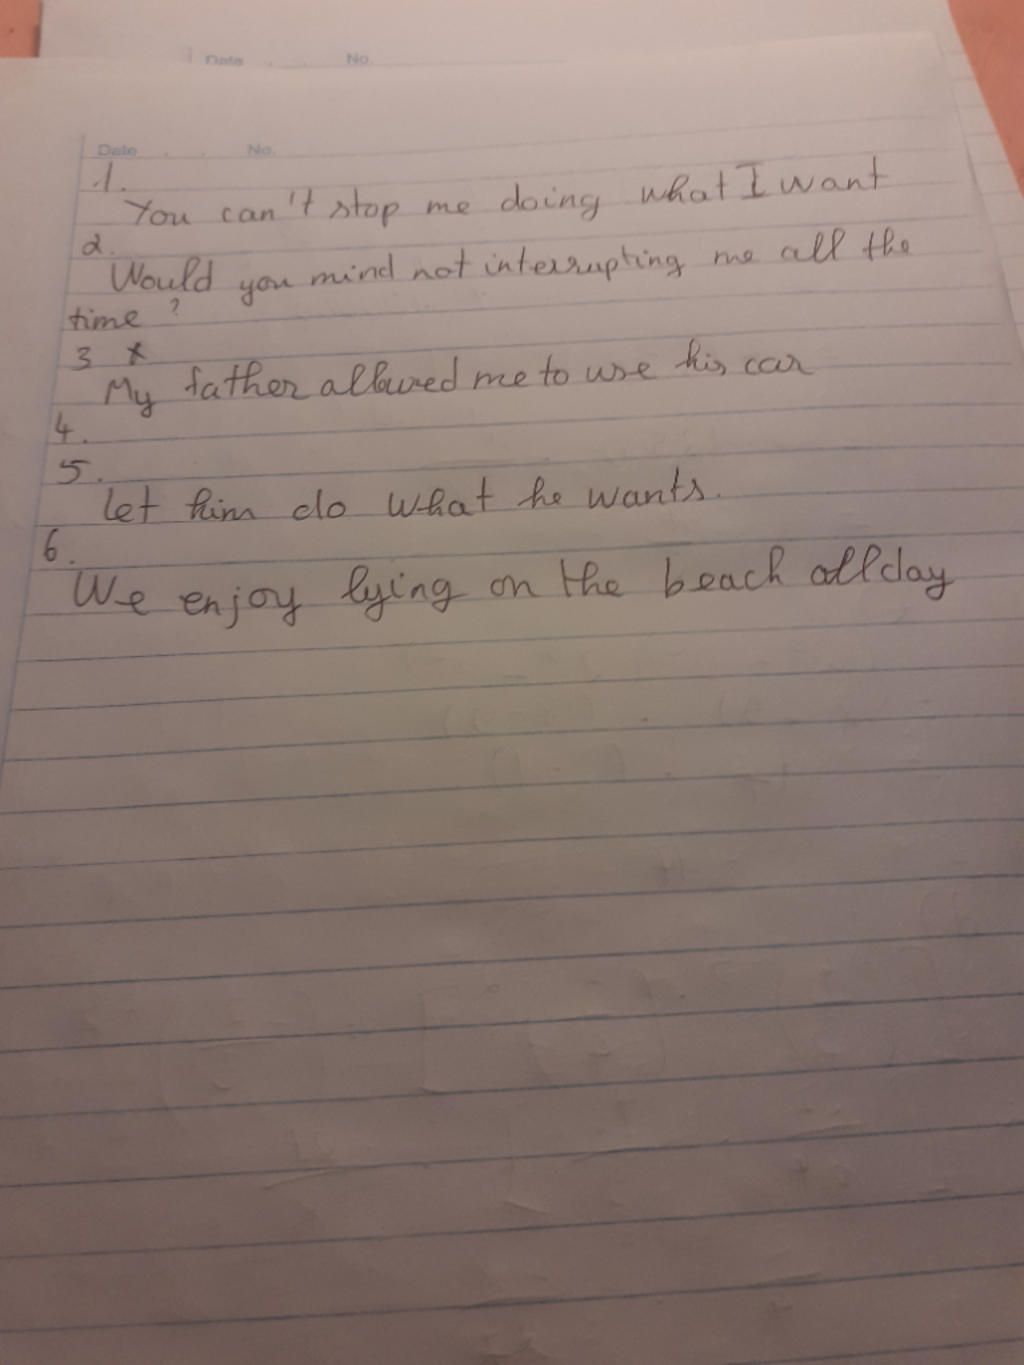 Date No.
Date No.
1.
You can't stop me doing what I want
2.
Would you mind not interrupting me all the
time ?
3 x
My father allowed me to use his car
4.
5.
let him do what he wants.
6.
We enjoy lying on the beach all day